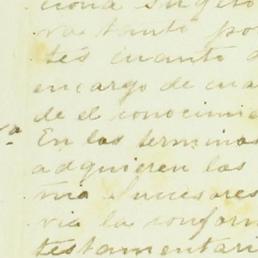 ciona sugeto
va tanto por
tes cuanto
encargo de cua
de el conocimie
En los terminos
adquieren los
mis Sucesores
via la conform
testamentari